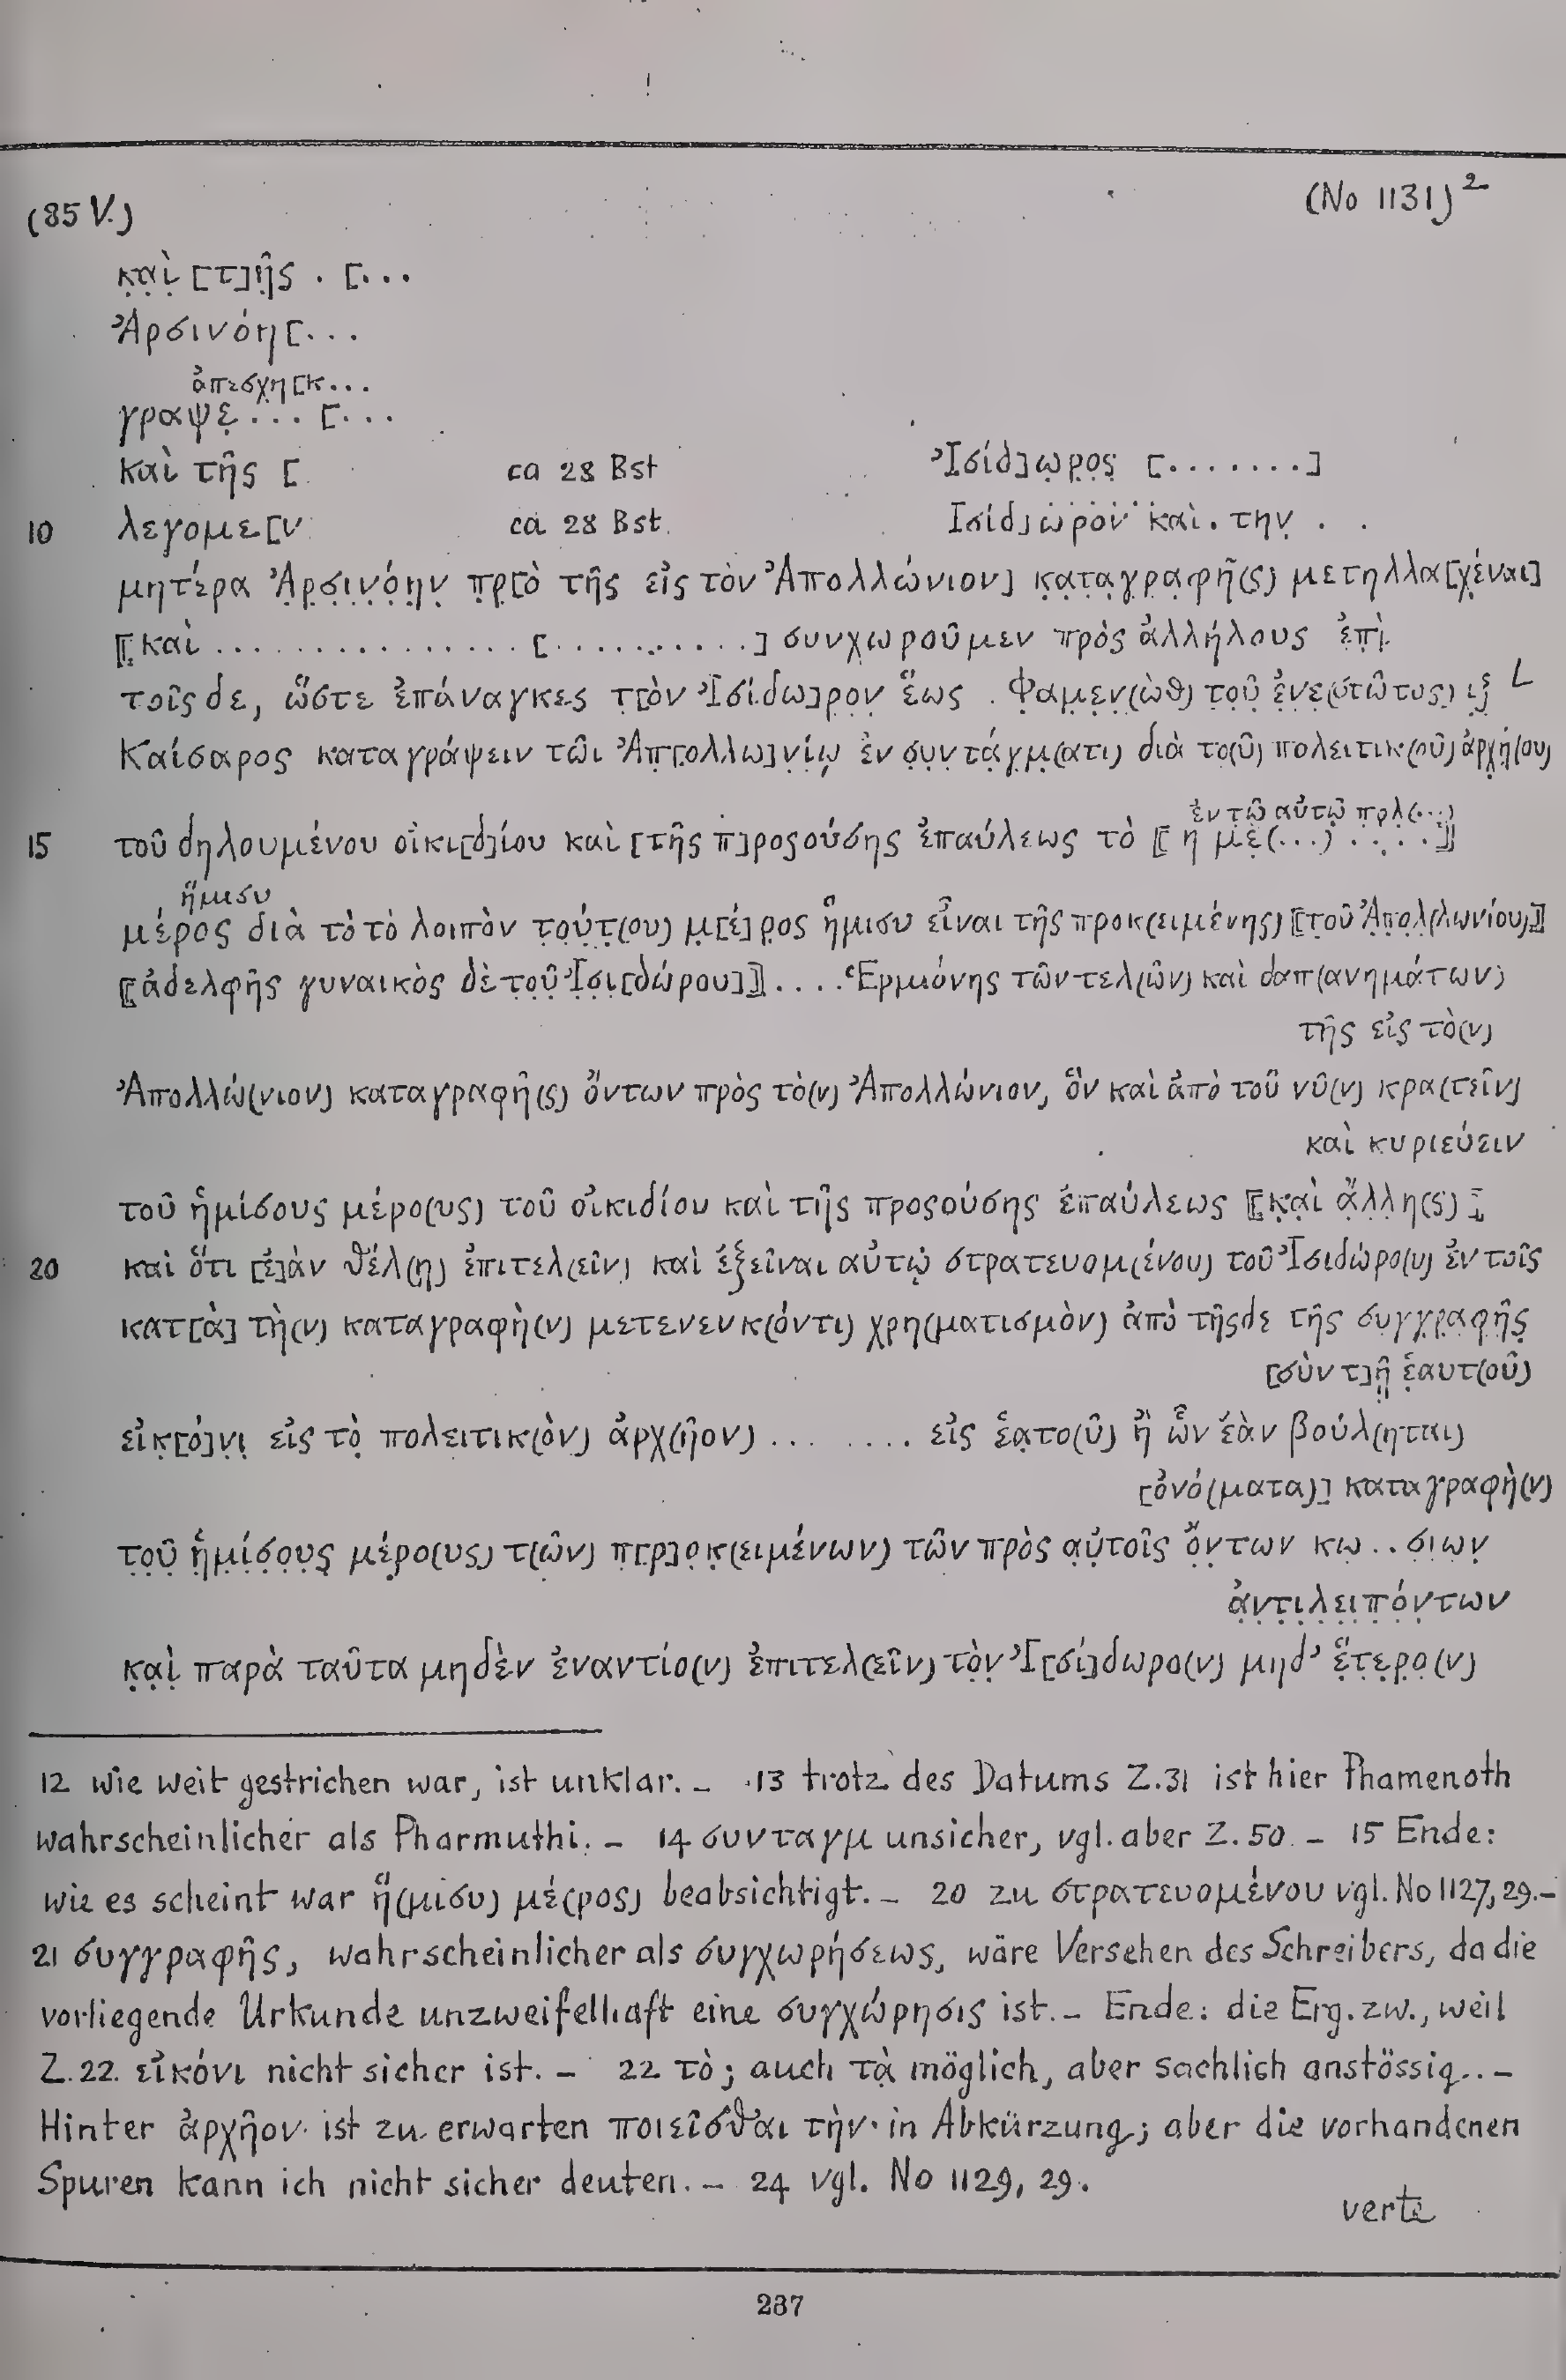 (85 V.)
(No 1131)²
κ̣α̣ὶ̣ [τ]ῆ̣ς . [...
Ἀρσινόη[...
ἀπεσχη[κ...
γραψε̣ ... [...
καὶ τῆς [ ca 28 Bst Ἰσίδ]ω̣ρ̣ο̣ς̣ [.......]
10 λεγομε[ν ca 28 Bst Ἰσίδ]ωρον καὶ . την̣ . .
μητέρα Ἀ̣ρ̣σ̣ι̣ν̣ό̣η̣ν̣ π̣ρ̣[ὸ τῆς εἰς τὸν Ἀπολλώνιον] κ̣α̣τ̣α̣γ̣ρ̣α̣φ̣ῆ̣(ς) μετηλλα[χ̣έναι]
⟦καὶ ................ [..........] συνχωροῦμεν πρὸς ἀλλήλους ἐπὶ̣
τοῖςδε, ὥστε ἐπάναγκες τ̣[ὸν Ἰσίδω]ρ̣ο̣ν̣ ἕως . Φ̣α̣μ̣ε̣ν̣(ὼθ) τ̣ο̣ῦ̣ ἐ̣ν̣ε̣(στῶτος) ι̣ξ̣ L
Καίσαρος καταγράψειν τῶι Ἀπ̣[ολλω]ν̣ίῳ̣ ἐν σ̣υ̣ν̣τ̣ά̣γ̣μ̣(ατι) διὰ το(ῦ) πολειτικ(οῦ) ἀρχή̣(ου)
ἐν τῷ̣ αὐτῷ̣ π̣ρ̣λ̣(...)
15 τοῦ δηλουμένου οἰκι[δ]ίου καὶ [τῆς π]ροςούσης ἐπαύλεως τὸ ⟦ η με̣(...) .....⟧
ἥμισυ
μέρος διὰ τὸ τὸ λοιπὸν τ̣ο̣ύ̣τ̣(ου) μ̣[έ]ρ̣ος ἥμισυ εἶναι τῆς προκ(ειμένης) ⟦τ̣οῦ Ἀ̣π̣ο̣λ̣(λωνίου)⟧
⟦ἀδελφῆς γυναικὸς δὲ τ̣ο̣ῦ̣ Ἰ̣σ̣ι̣[δώρου]⟧ .... Ἑρμιόνης τῶν τελ(ῶν) καὶ δαπ(ανημάτων)
τῆς εἰς τὸ(ν)
Ἀπολλώ(νιον) καταγραφῆ(ς) ὄντων πρὸς τὸ(ν) Ἀπολλώνιον, ὃν καὶ ἀπὸ τοῦ νῦ(ν) κρα(τεῖν)
καὶ κυριεύειν
τοῦ ἡμίσους μέρο(υς) τοῦ οἰκιδίου καὶ τῆς προςούσης ἐπαύλεως ⟦κ̣α̣ὶ ἄ̣λ̣λ̣η(ς)⟧
20 καὶ ὅτι [ἐ]ὰν θέλ(ῃ) ἐπιτελ(εῖν) καὶ ἐξεῖναι αὐτῷ̣ στρατευομ(ένου) τοῦ Ἰσιδώρο(υ) ἐν τοῖς
κατ[ὰ] τὴ(ν) καταγραφὴ(ν) μετενενκ(όντι) χρη(ματισμὸν) ἀπὸ τῆςδε τῆς συγγ̣ρ̣α̣φ̣ῆ̣ς̣
[σὺν τ]ῇ̣ ἑ̣αυτ(οῦ)
εἰκ̣[ό]ν̣ι̣ εἰς τὸ̣ πολειτικ(ὸν) ἀρχ(ῆον) ... .... εἰς ἑα̣το(ῦ) ἢ̣ ὧν ἐὰν βούλ(ηται)
[ὀνό(ματα)] καταγραφὴ(ν)
τ̣ο̣ῦ̣ ἡ̣μ̣ί̣σ̣ο̣υ̣ς̣ μέρο(υς) τ(ῶν) π̣[ρ]ο̣κ̣(ειμένων) τῶν πρὸς α̣ὐ̣τοῖς ὄ̣ν̣των κω̣ .. σ̣ι̣ω̣ν̣
ἀ̣ν̣τ̣ι̣λ̣ε̣ι̣π̣ό̣ν̣των
κ̣α̣ὶ̣ παρὰ ταῦτα μηδὲν ἐναντίο(ν) ἐπιτελ(εῖν) τὸ̣ν̣ Ἰ[σί]δωρο(ν) μηδ’ ἕ̣τ̣ε̣ρ̣ο̣(ν)
12 wie weit gestrichen war, ist unklar. – 13 trotz des Datums Z.31 ist hier Phamenoth
wahrscheinlicher als Pharmuthi. – 14 συνταγμ unsicher, vgl. aber Z. 50. – 15 Ende:
wie es scheint war ἥ(μισυ) μέ(ρος) beabsichtigt. – 20 zu στρατευομένου vgl. No 1127, 29. –
21 συγγραφῆς, wahrscheinlicher als συγχωρήσεως, wäre Versehen des Schreibers, da die
vorliegende Urkunde unzweifelhaft eine συγχώρησις ist. – Ende: die Erg. zw., weil
Z. 22. εἰκόνι nicht sicher ist. – 22 τὸ; auch τὰ̣ möglich, aber sachlich anstössig.. –
Hinter ἀρχῆον ist zu erwarten ποιεῖσθαι τὴν in Abkürzung; aber die vorhandenen
Spuren kann ich nicht sicher deuten. – 24 vgl. No 1129, 29.
verte
237